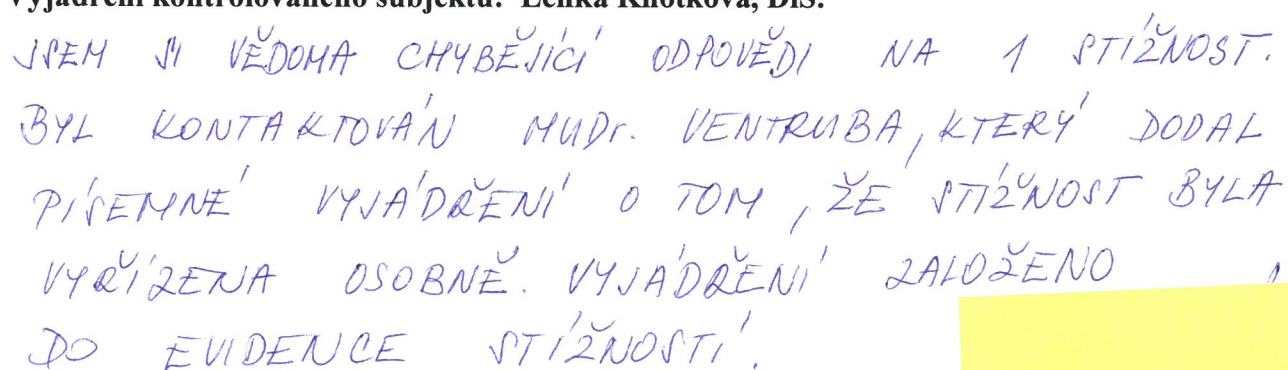 Vyjádření kontrolovaného subjektu: Lenka Knotková, DiS.
JSEM SI VĚDOMA CHYBĚJÍCÍ ODPOVĚDI NA 1 STÍŽNOST.
BYL KONTAKTOVÁN MUDr. VENTRUBA, KTERÝ DODAL
PÍSEMNÉ VYJÁDŘENÍ O TOM, ŽE STÍŽNOST BYLA
VYŘÍZENA OSOBNĚ. VYJÁDŘENÍ ZALOŽENO
DO EVIDENCE STÍŽNOSTÍ.